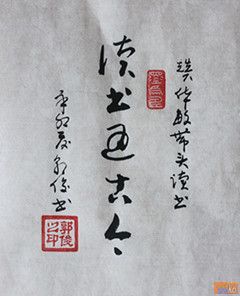 华敏带头读书
读书通古今
辛卯夏郭俊书
郭俊之印